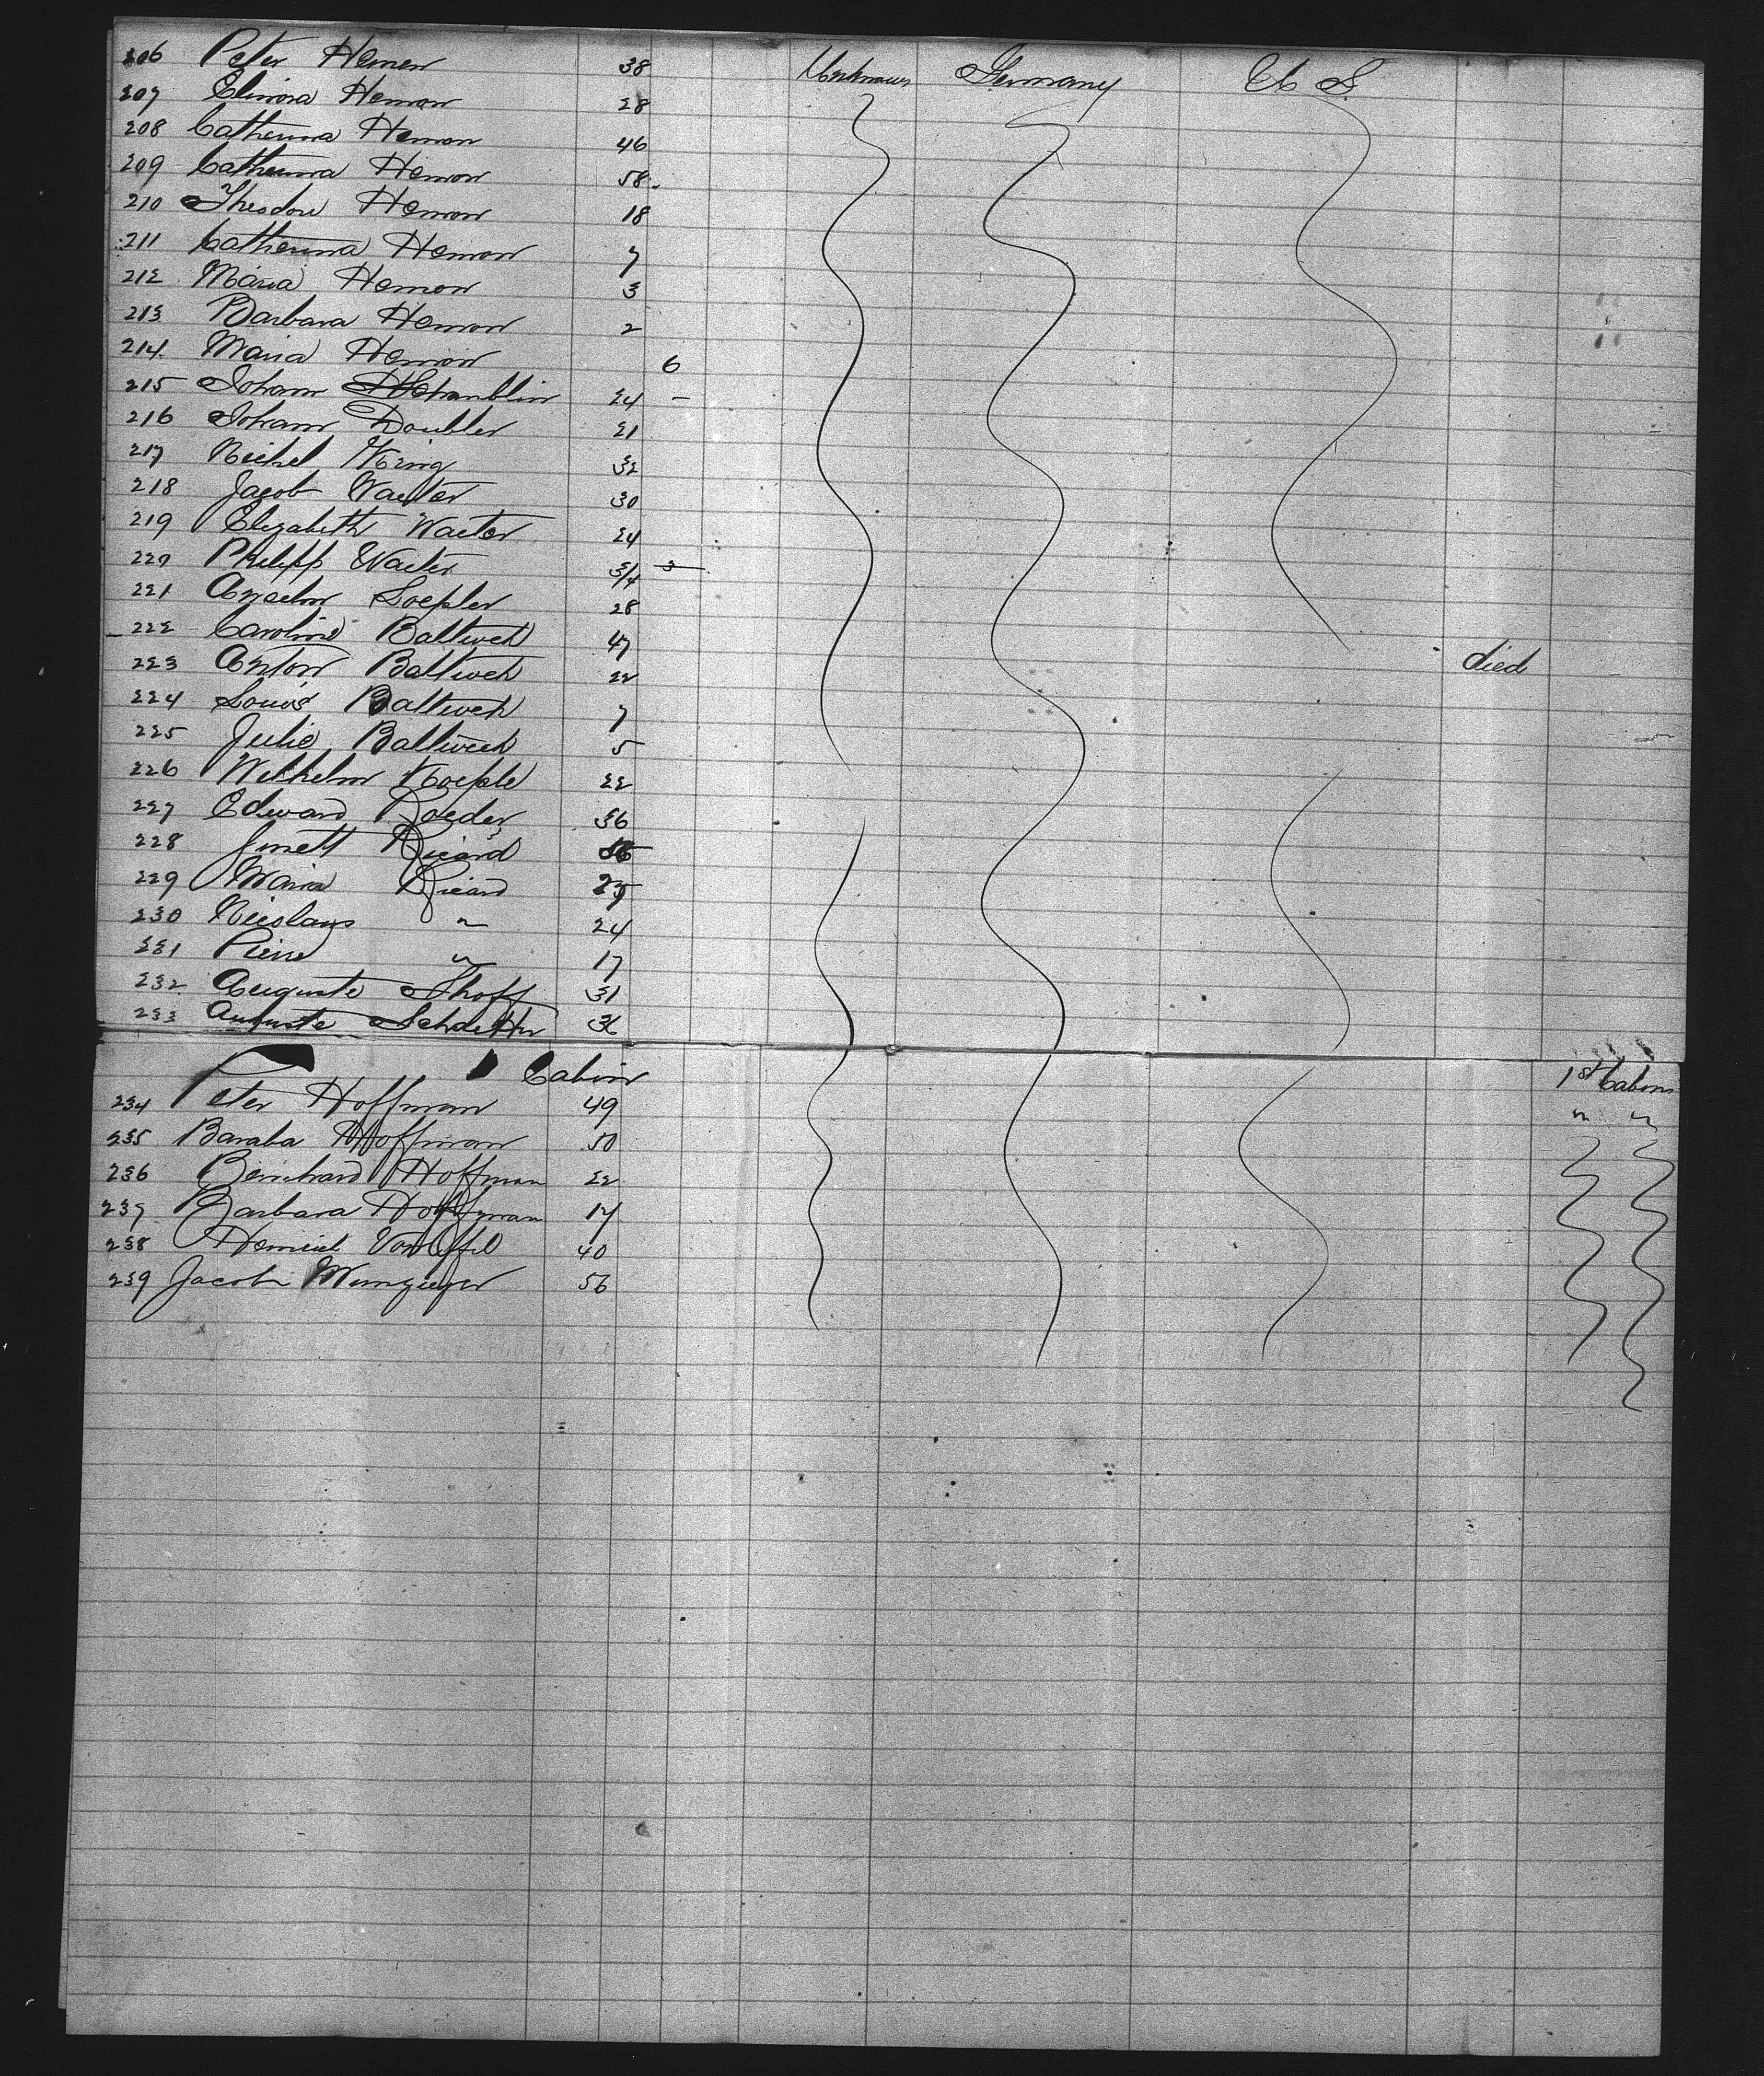 206 Peter Hemen 38 Unknown Germany U S
207 Elinora Hemon 28
208 Catherina Hemon 46
209 Catherina Hemon 58
210 Theodore Hemon 18
211 Catherina Hemon 7
212 Maria Hemon 3
213 Barbara Hemon 2
214 Maria Hemon 6
215 Johann 24 –
216 Johann Doubler 21
217 Michel King 32
218 Jacob Waiter 30
219 Elizabeth Waiter 24
220 Philipp Waiter 3/4 3
221 Anselm Soepler 28
222 Caroline Baltweck 47
223 Anton Baltweck 22 died
224 Louis Baltweck 7
225 Julie Baltweck 5
226 Wilhelm Koeple 22
227 Edward Roeder 36
228 Ricard
229 Maria Ricard
230 Nicolaus " 24
231 Pierre " 17
232 Auguste Thoff 31
233 Auguste 36
Cabin 1st Cabin
234 Peter Hoffman 49 " "
235 Baraba Hoffman 50
236 Bernhard Hoffman 22
237 Barbara Hoffman 17
238 Heinrich 40
239 Jacob 56